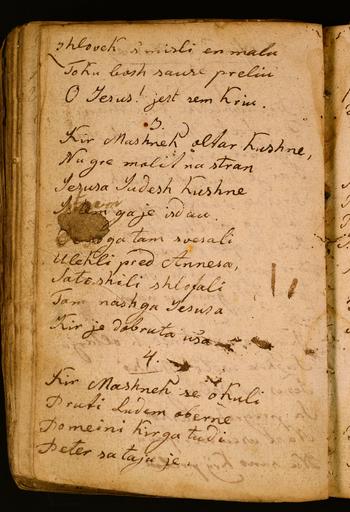 zhlovek smisli en malu
Toku bosh sause preliu
O Jesus! jest sem kriu.
3.
Kir Mashnek oltar kushne,
Nu gre molit na stran
Jesusa Judesh kushne
gaje isdau.
ga tam svesali
Ulekli pred Annesa,
Satoshili shlefali
Tam nashga Jesusa
Kir je dobruta usa
4.
Kir Mashnek se okuli
Pruti ludem oberne
Pomeini kirga tudi
Peter sataju je.